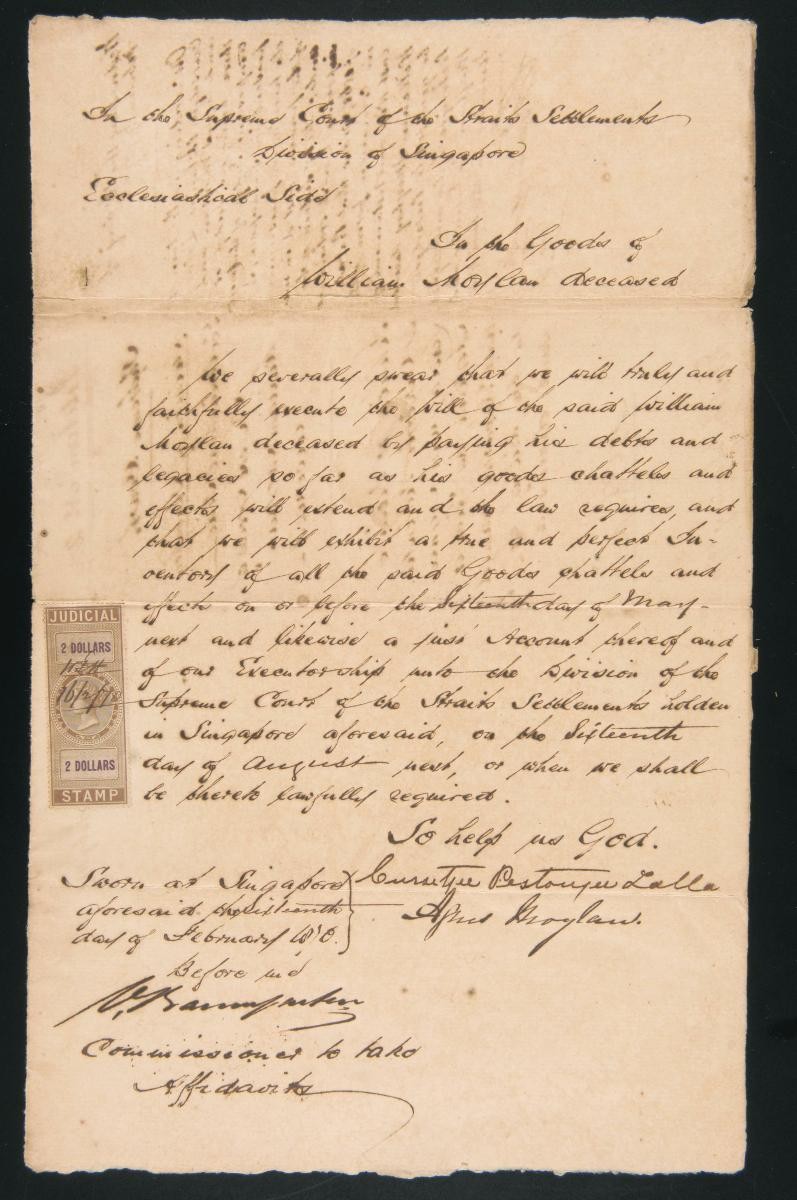 In the Supreme Court of the Straits Settlements
Division of Singapore
Ecclesiastical Side
In the Goods of
William Moylan deceased
We severally swear that we will truly and
faithfully execute the Will of the said William
Moylan deceased by paying his debts and
legacies so far as his goods chattels and
effects will extend and the law requires, and
that we will exhibit a true and perfect In-
ventory of all the said Goods chattels and
effects on or before the Sixteenth day of May
next and likewise a just Account thereof and
of our Executorship unto the Division of the
Supreme Court of the Straits Settlements holden
in Singapore aforesaid, on the Sixteenth
day of August next, or when we shall
be thereto lawfully required.
So help us God.
JUDICIAL
2 DOLLARS
16/2/7
2 DOLLARS
STAMP
Sworn at Singapore
aforesaid the Sixteenth
day of February
Before me
Cursetjee Pestonjee Lalla
Agnes Moylan.
Commissioner to take
Affidavits